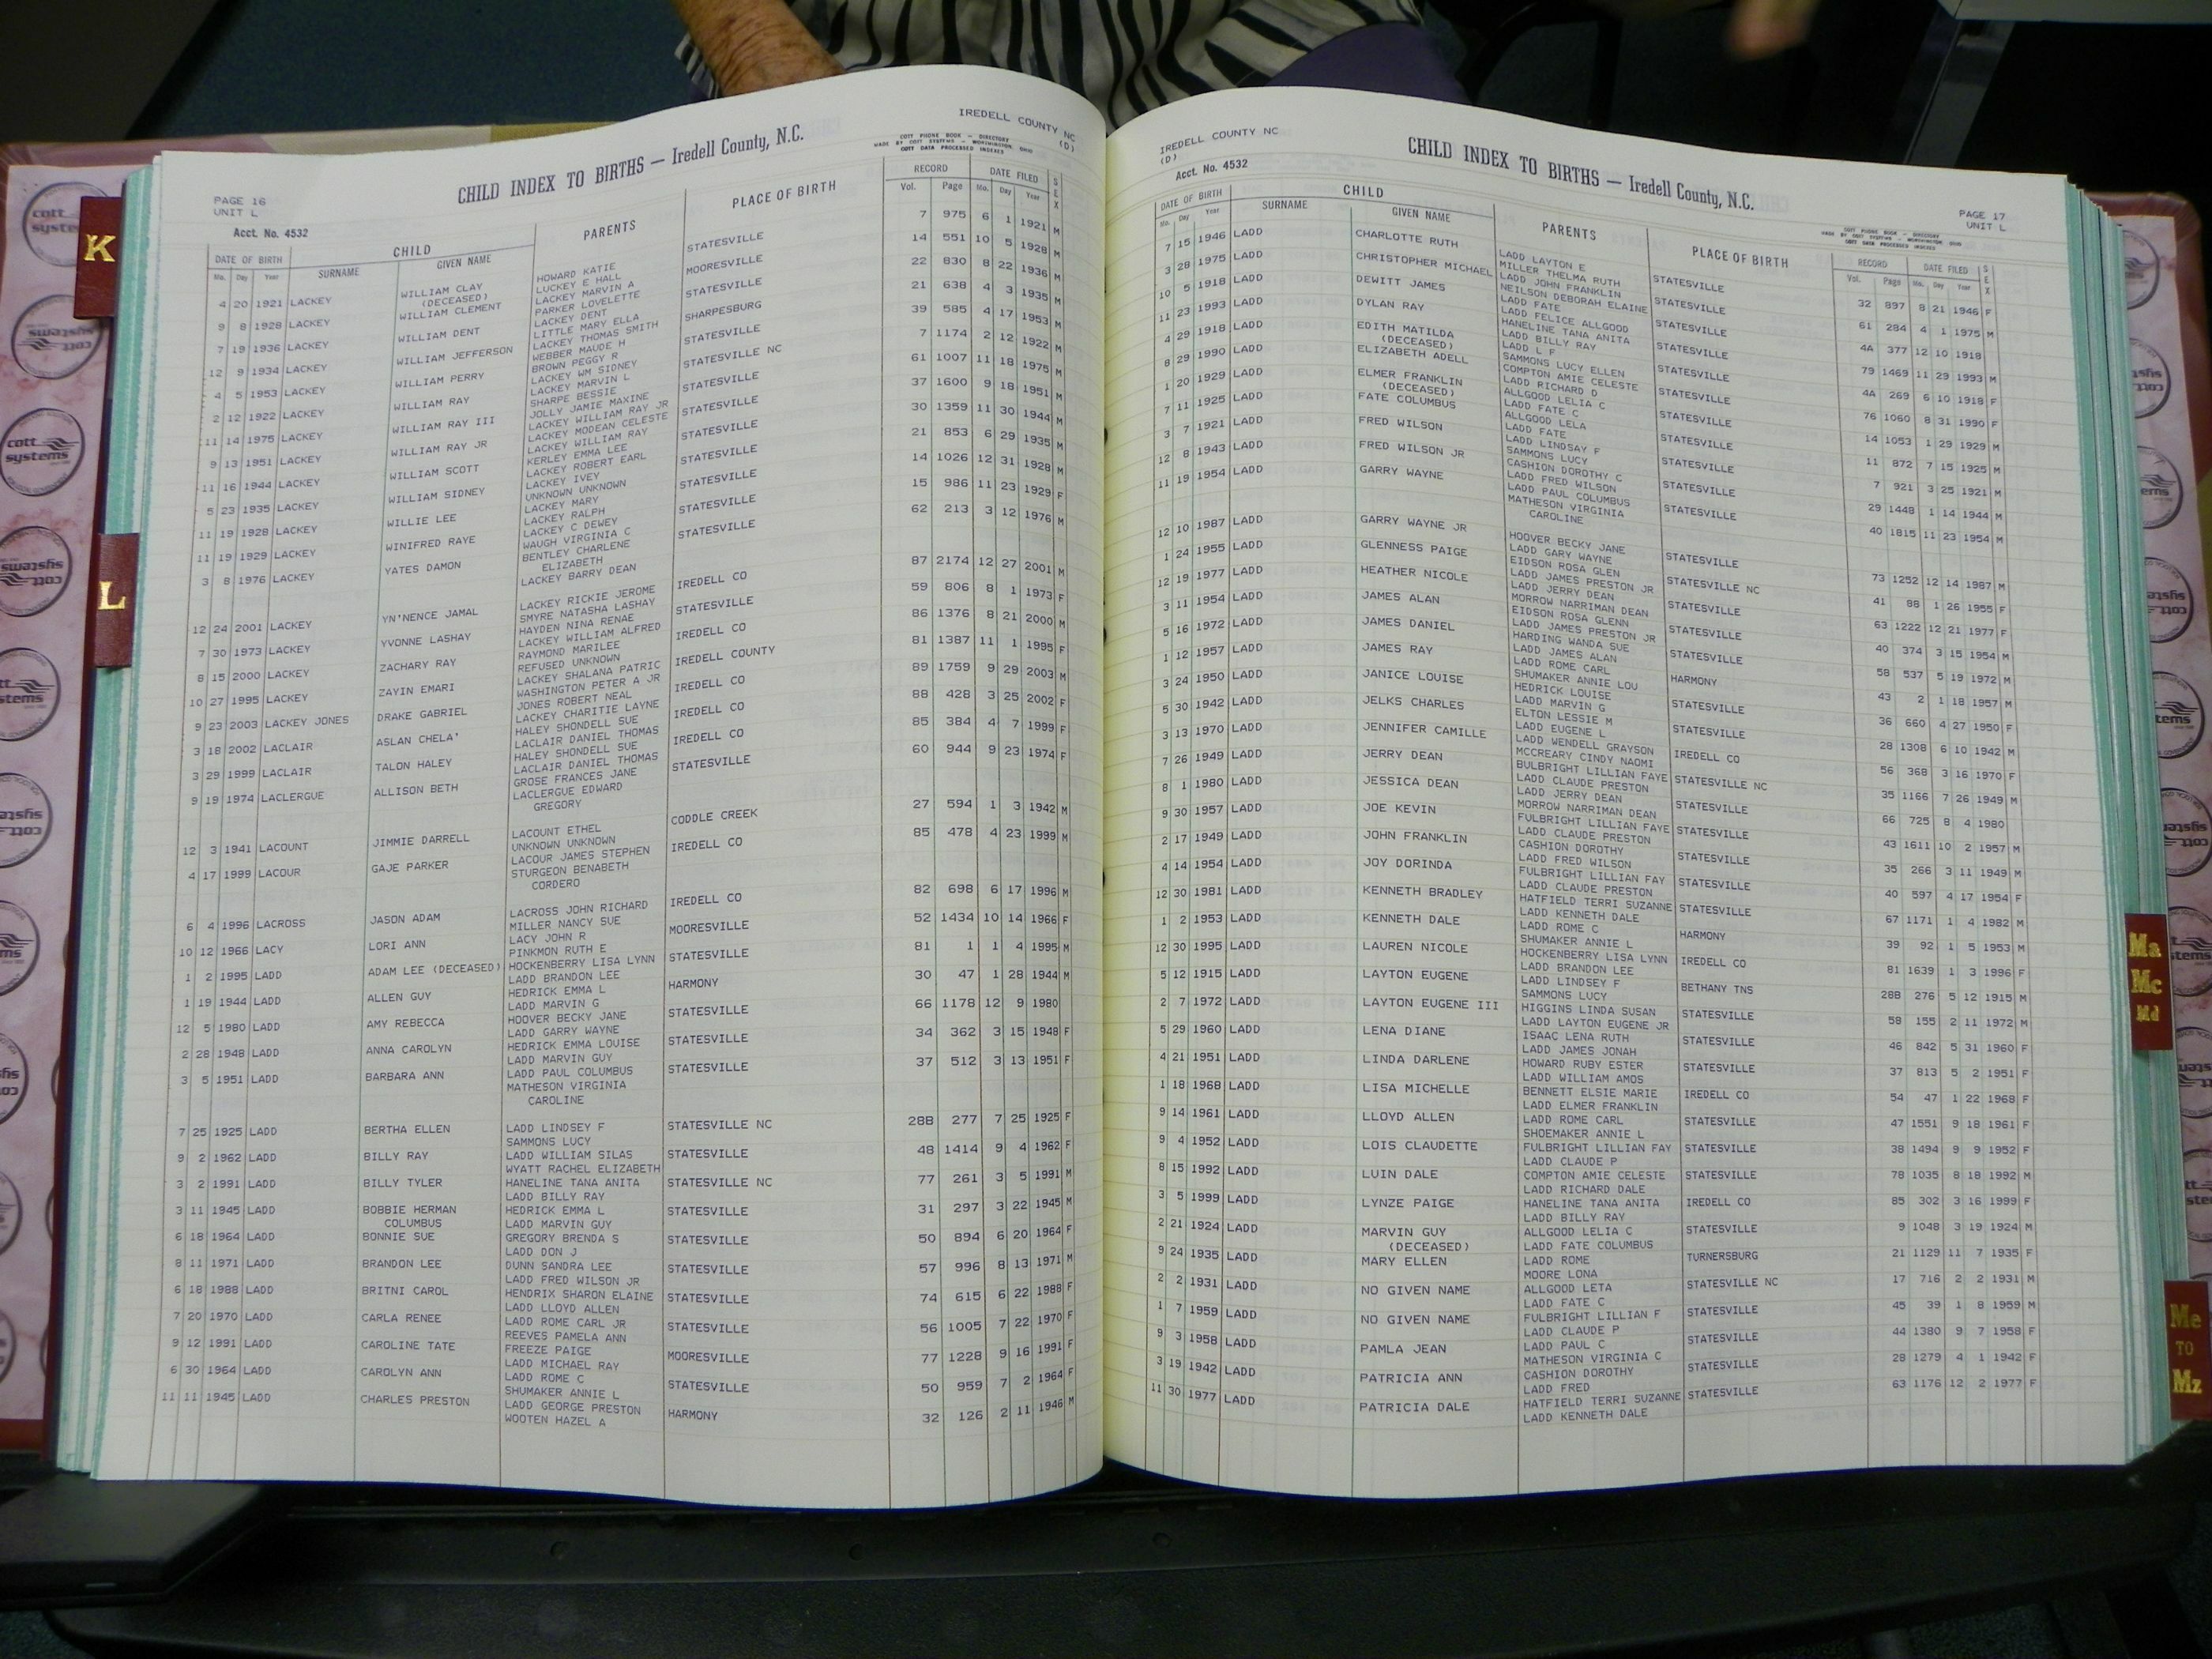 IREDELL COUNTY NC
(D)
CHILD INDEX TO BIRTHS — Iredell County, N.C.
COTT PHONE BOOK - DIRECTORY
MADE BY COTT SYSTEMS - WORTHINGTON, OHIO
COTT DATA PROCESSED INDEXES
PAGE 16
UNIT L
Acct. No. 4532
DATE OF BIRTH CHILD PARENTS PLACE OF BIRTH RECORD DATE FILED SEX
Mo. Day Year SURNAME GIVEN NAME Vol. Page Mo. Day Year
4 20 1921 LACKEY WILLIAM CLAY HOWARD KATIE STATESVILLE 7 975 6 1 1921 M
(DECEASED) LUCKEY E HALL
9 8 1928 LACKEY WILLIAM CLEMENT LACKEY MARVIN A MOORESVILLE 14 551 10 5 1928 M
PARKER LOVELETTE
7 19 1936 LACKEY WILLIAM DENT LACKEY DENT STATESVILLE 22 830 8 22 1936 M
LITTLE MARY ELLA
12 9 1934 LACKEY WILLIAM JEFFERSON LACKEY THOMAS SMITH SHARPESBURG 21 638 4 3 1935 M
WEBBER MAUDE H
4 5 1953 LACKEY WILLIAM PERRY BROWN PEGGY R STATESVILLE 39 585 4 17 1953 M
LACKEY WM SIDNEY
2 12 1922 LACKEY WILLIAM RAY LACKEY MARVIN L STATESVILLE NC 7 1174 2 12 1922 M
SHARPE BESSIE
11 14 1975 LACKEY WILLIAM RAY III JOLLY JAMIE MAXINE STATESVILLE 61 1007 11 18 1975 M
LACKEY WILLIAM RAY JR
9 13 1951 LACKEY WILLIAM RAY JR LACKEY MODEAN CELESTE STATESVILLE 37 1600 9 18 1951 M
LACKEY WILLIAM RAY
11 16 1944 LACKEY WILLIAM SCOTT KERLEY EMMA LEE STATESVILLE 30 1359 11 30 1944 M
LACKEY ROBERT EARL
5 23 1935 LACKEY WILLIAM SIDNEY LACKEY IVEY STATESVILLE 21 853 6 29 1935 M
UNKNOWN UNKNOWN
11 19 1928 LACKEY WILLIE LEE LACKEY MARY STATESVILLE 14 1026 12 31 1928 M
LACKEY RALPH
11 19 1929 LACKEY WINIFRED RAYE LACKEY C DEWEY STATESVILLE 15 986 11 23 1929 F
WAUGH VIRGINIA C
3 8 1976 LACKEY YATES DAMON BENTLEY CHARLENE STATESVILLE 62 213 3 12 1976 M
ELIZABETH
LACKEY BARRY DEAN
12 24 2001 LACKEY YN'NENCE JAMAL LACKEY RICKIE JEROME IREDELL CO 87 2174 12 27 2001 M
SMYRE NATASHA LASHAY
7 30 1973 LACKEY YVONNE LASHAY HAYDEN NINA RENAE STATESVILLE 59 806 8 1 1973 F
LACKEY WILLIAM ALFRED
8 15 2000 LACKEY ZACHARY RAY RAYMOND MARILEE IREDELL CO 86 1376 8 21 2000 M
REFUSED UNKNOWN
10 27 1995 LACKEY ZAYIN EMARI LACKEY SHALANA PATRIC IREDELL COUNTY 81 1387 11 1 1995 F
WASHINGTON PETER A JR
9 23 2003 LACKEY JONES DRAKE GABRIEL JONES ROBERT NEAL IREDELL CO 89 1759 9 29 2003 M
LACKEY CHARITIE LAYNE
3 18 2002 LACLAIR ASLAN CHELA' HALEY SHONDELL SUE IREDELL CO 88 428 3 25 2002 F
LACLAIR DANIEL THOMAS
3 29 1999 LACLAIR TALON HALEY HALEY SHONDELL SUE IREDELL CO 85 384 4 7 1999 F
LACLAIR DANIEL THOMAS
9 19 1974 LACLERGUE ALLISON BETH GROSE FRANCES JANE STATESVILLE 60 944 9 23 1974 F
LACLERGUE EDWARD
GREGORY
12 3 1941 LACOUNT JIMMIE DARRELL LACOUNT ETHEL CODDLE CREEK 27 594 1 3 1942 M
UNKNOWN UNKNOWN
4 17 1999 LACOUR GAJE PARKER LACOUR JAMES STEPHEN IREDELL CO 85 478 4 23 1999 M
STURGEON BENABETH
CORDERO
6 4 1996 LACROSS JASON ADAM LACROSS JOHN RICHARD IREDELL CO 82 698 6 17 1996 M
MILLER NANCY SUE
10 12 1966 LACY LORI ANN LACY JOHN R MOORESVILLE 52 1434 10 14 1966 F
PINKMON RUTH E
1 2 1995 LADD ADAM LEE (DECEASED) HOCKENBERRY LISA LYNN STATESVILLE 81 1 1 4 1995 M
LADD BRANDON LEE
1 19 1944 LADD ALLEN GUY HEDRICK EMMA L HARMONY 30 47 1 28 1944 M
LADD MARVIN G
12 5 1980 LADD AMY REBECCA HOOVER BECKY JANE STATESVILLE 66 1178 12 9 1980
LADD GARRY WAYNE
2 28 1948 LADD ANNA CAROLYN HEDRICK EMMA LOUISE STATESVILLE 34 362 3 15 1948 F
LADD MARVIN GUY
3 5 1951 LADD BARBARA ANN LADD PAUL COLUMBUS STATESVILLE 37 512 3 13 1951 F
MATHESON VIRGINIA
CAROLINE
7 25 1925 LADD BERTHA ELLEN LADD LINDSEY F STATESVILLE NC 28B 277 7 25 1925 F
SAMMONS LUCY
9 2 1962 LADD BILLY RAY LADD WILLIAM SILAS STATESVILLE 48 1414 9 4 1962 F
WYATT RACHEL ELIZABETH
3 2 1991 LADD BILLY TYLER HANELINE TANA ANITA STATESVILLE NC 77 261 3 5 1991 M
LADD BILLY RAY
3 11 1945 LADD BOBBIE HERMAN HEDRICK EMMA L STATESVILLE 31 297 3 22 1945 M
COLUMBUS LADD MARVIN GUY
6 18 1964 LADD BONNIE SUE GREGORY BRENDA S STATESVILLE 50 894 6 20 1964 F
LADD DON J
8 11 1971 LADD BRANDON LEE DUNN SANDRA LEE STATESVILLE 57 996 8 13 1971 M
LADD FRED WILSON JR
6 18 1988 LADD BRITNI CAROL HENDRIX SHARON ELAINE STATESVILLE 74 615 6 22 1988 F
LADD LLOYD ALLEN
7 20 1970 LADD CARLA RENEE LADD ROME CARL JR STATESVILLE 56 1005 7 22 1970 F
REEVES PAMELA ANN
9 12 1991 LADD CAROLINE TATE FREEZE PAIGE MOORESVILLE 77 1228 9 16 1991 F
LADD MICHAEL RAY
6 30 1964 LADD CAROLYN ANN LADD ROME C STATESVILLE 50 959 7 2 1964 F
SHUMAKER ANNIE L
11 11 1945 LADD CHARLES PRESTON LADD GEORGE PRESTON HARMONY 32 126 2 11 1946 M
WOOTEN HAZEL A
IREDELL COUNTY NC
(D)
CHILD INDEX TO BIRTHS — Iredell County, N.C.
Acct. No. 4532
PAGE 17
UNIT L
COTT PHONE BOOK - DIRECTORY
MADE BY COTT SYSTEMS - WORTHINGTON, OHIO
COTT DATA PROCESSED INDEXES
DATE OF BIRTH CHILD PARENTS PLACE OF BIRTH RECORD DATE FILED SEX
Mo. Day Year SURNAME GIVEN NAME Vol. Page Mo. Day Year
7 15 1946 LADD CHARLOTTE RUTH LADD LAYTON E STATESVILLE 32 897 8 21 1946 F
MILLER THELMA RUTH
3 28 1975 LADD CHRISTOPHER MICHAEL LADD JOHN FRANKLIN STATESVILLE 61 284 4 1 1975 M
NEILSON DEBORAH ELAINE
10 5 1918 LADD DEWITT JAMES LADD FATE STATESVILLE 4A 377 12 10 1918
LADD FELICE ALLGOOD
11 23 1993 LADD DYLAN RAY HANELINE TANA ANITA STATESVILLE 79 1469 11 29 1993 M
LADD BILLY RAY
4 29 1918 LADD EDITH MATILDA LADD L F STATESVILLE 4A 269 6 10 1918 F
(DECEASED) SAMMONS LUCY ELLEN
8 29 1990 LADD ELIZABETH ADELL COMPTON AMIE CELESTE STATESVILLE 76 1060 8 31 1990 F
LADD RICHARD D
1 20 1929 LADD ELMER FRANKLIN ALLGOOD LELIA C STATESVILLE 14 1053 1 29 1929 M
(DECEASED) LADD FATE C
7 11 1925 LADD FATE COLUMBUS ALLGOOD LELA STATESVILLE 11 872 7 15 1925 M
LADD FATE
3 7 1921 LADD FRED WILSON LADD LINDSAY F STATESVILLE 7 921 3 25 1921 M
SAMMONS LUCY
12 8 1943 LADD FRED WILSON JR CASHION DOROTHY C STATESVILLE 29 1448 1 14 1944 M
LADD FRED WILSON
11 19 1954 LADD GARRY WAYNE LADD PAUL COLUMBUS 40 1815 11 23 1954 M
MATHESON VIRGINIA
CAROLINE
12 10 1987 LADD GARRY WAYNE JR HOOVER BECKY JANE STATESVILLE 73 1252 12 14 1987 M
LADD GARY WAYNE
1 24 1955 LADD GLENNESS PAIGE EIDSON ROSA GLEN STATESVILLE NC 41 88 1 26 1955 F
LADD JAMES PRESTON JR
12 19 1977 LADD HEATHER NICOLE LADD JERRY DEAN STATESVILLE 63 1222 12 21 1977 F
MORROW NARRIMAN DEAN
3 11 1954 LADD JAMES ALAN EIDSON ROSA GLENN STATESVILLE 40 374 3 15 1954 M
LADD JAMES PRESTON JR
5 16 1972 LADD JAMES DANIEL HARDING WANDA SUE STATESVILLE 58 537 5 19 1972 M
LADD JAMES ALAN
1 12 1957 LADD JAMES RAY LADD ROME CARL HARMONY 43 2 1 18 1957 M
SHUMAKER ANNIE LOU
3 24 1950 LADD JANICE LOUISE HEDRICK LOUISE STATESVILLE 36 660 4 27 1950 F
LADD MARVIN G
5 30 1942 LADD JELKS CHARLES ELTON LESSIE M IREDELL CO 28 1308 6 10 1942 M
LADD EUGENE L
3 13 1970 LADD JENNIFER CAMILLE LADD WENDELL GRAYSON STATESVILLE NC 56 368 3 16 1970 F
MCCREARY CINDY NAOMI
7 26 1949 LADD JERRY DEAN BULBRIGHT LILLIAN FAYE STATESVILLE 35 1166 7 26 1949 M
LADD CLAUDE PRESTON
8 1 1980 LADD JESSICA DEAN LADD JERRY DEAN STATESVILLE 66 725 8 4 1980
MORROW NARRIMAN DEAN
9 30 1957 LADD JOE KEVIN FULBRIGHT LILLIAN FAYE STATESVILLE 43 1611 10 2 1957 M
LADD CLAUDE PRESTON
2 17 1949 LADD JOHN FRANKLIN CASHION DOROTHY STATESVILLE 35 266 3 11 1949 M
LADD FRED WILSON
4 14 1954 LADD JOY DORINDA FULBRIGHT LILLIAN FAY STATESVILLE 40 597 4 17 1954 F
LADD CLAUDE PRESTON
12 30 1981 LADD KENNETH BRADLEY HATFIELD TERRI SUZANNE STATESVILLE 67 1171 1 4 1982 M
LADD KENNETH DALE
1 2 1953 LADD KENNETH DALE LADD ROME C HARMONY 39 92 1 5 1953 M
SHUMAKER ANNIE L
12 30 1995 LADD LAUREN NICOLE HOCKENBERRY LISA LYNN IREDELL CO 81 1639 1 3 1996 F
LADD BRANDON LEE
5 12 1915 LADD LAYTON EUGENE LADD LINDSEY F BETHANY TNS 28B 276 5 12 1915 M
SAMMONS LUCY
2 7 1972 LADD LAYTON EUGENE III HIGGINS LINDA SUSAN STATESVILLE 58 155 2 11 1972 M
LADD LAYTON EUGENE JR
5 29 1960 LADD LENA DIANE ISAAC LENA RUTH STATESVILLE 46 842 5 31 1960 F
LADD JAMES JONAH
4 21 1951 LADD LINDA DARLENE HOWARD RUBY ESTER STATESVILLE 37 813 5 2 1951 F
LADD WILLIAM AMOS
1 18 1968 LADD LISA MICHELLE BENNETT ELSIE MARIE IREDELL CO 54 47 1 22 1968 F
LADD ELMER FRANKLIN
9 14 1961 LADD LLOYD ALLEN LADD ROME CARL STATESVILLE 47 1551 9 18 1961 F
SHOEMAKER ANNIE L
9 4 1952 LADD LOIS CLAUDETTE FULBRIGHT LILLIAN FAY STATESVILLE 38 1494 9 9 1952 F
LADD CLAUDE P
8 15 1992 LADD LUIN DALE COMPTON AMIE CELESTE STATESVILLE 78 1035 8 18 1992 M
LADD RICHARD DALE
3 5 1999 LADD LYNZE PAIGE HANELINE TANA ANITA IREDELL CO 85 302 3 16 1999 F
LADD BILLY RAY
2 21 1924 LADD MARVIN GUY ALLGOOD LELIA C STATESVILLE 9 1048 3 19 1924 M
(DECEASED) LADD FATE COLUMBUS
9 24 1935 LADD MARY ELLEN LADD ROME TURNERSBURG 21 1129 11 7 1935 F
MOORE LONA
2 2 1931 LADD NO GIVEN NAME ALLGOOD LETA STATESVILLE NC 17 716 2 2 1931 M
LADD FATE C
1 7 1959 LADD NO GIVEN NAME FULBRIGHT LILLIAN F STATESVILLE 45 39 1 8 1959 M
LADD CLAUDE P
9 3 1958 LADD PAMLA JEAN LADD PAUL C STATESVILLE 44 1380 9 7 1958 F
MATHESON VIRGINIA C
3 19 1942 LADD PATRICIA ANN CASHION DOROTHY STATESVILLE 28 1279 4 1 1942 F
LADD FRED
11 30 1977 LADD PATRICIA DALE HATFIELD TERRI SUZANNE STATESVILLE 63 1176 12 2 1977 F
LADD KENNETH DALE
K
L
Ma
Mc
Md
Me
TO
Mz
cott systems